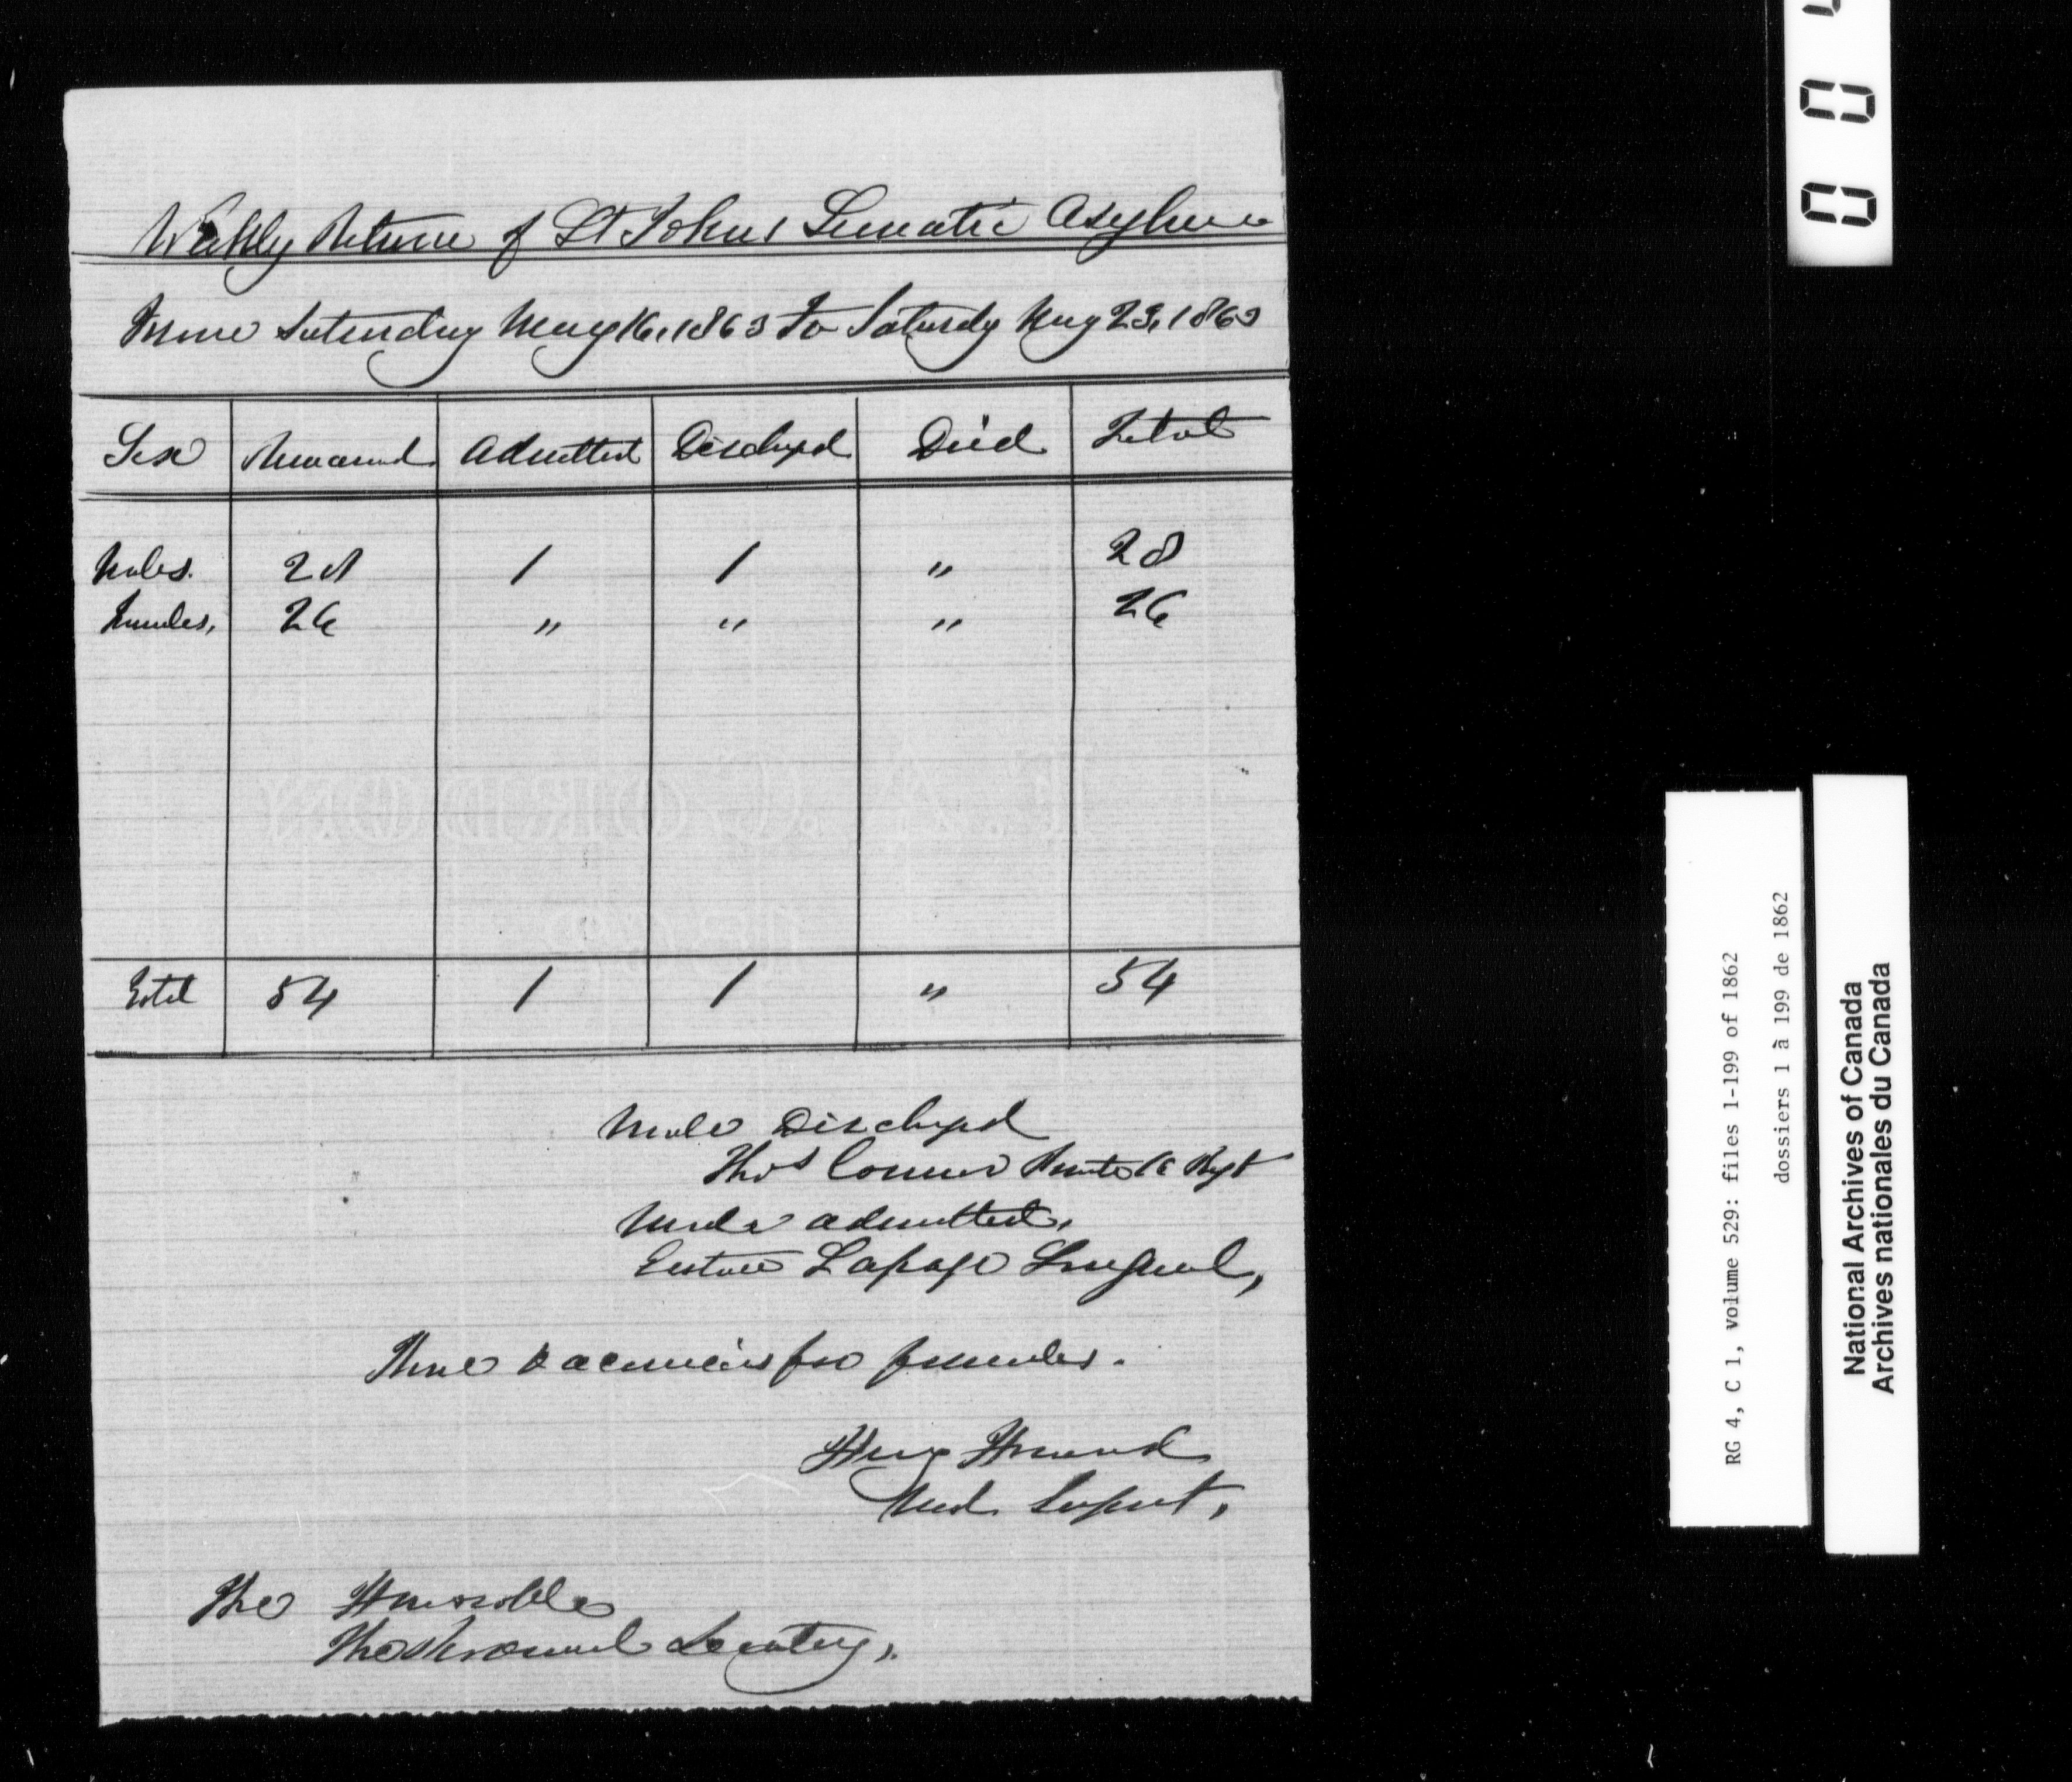 Weekly Return of St Johns Lunatic Asylum
From Saturday May 16, 1863 to Saturdy May 23, 1863
Sex Remaind Admitted Dischgd Died Total
Males. 28 1 1 " 28
Females, 26 " " " 26
Total 54 1 1 " 54
Male Dischgd
Thos Connor Private 16 Regt
Male admitted,
Lapage
Three vacancies for females.
Henry Howard
Med Supert,
The Honorable
The Provincial Secretary,
H. A. GOULD
1862
0 0
RG 4, C 1, volume 529: files 1-199 of 1862
dossiers 1 à 199 de 1862
National Archives of Canada
Archives nationales du Canada